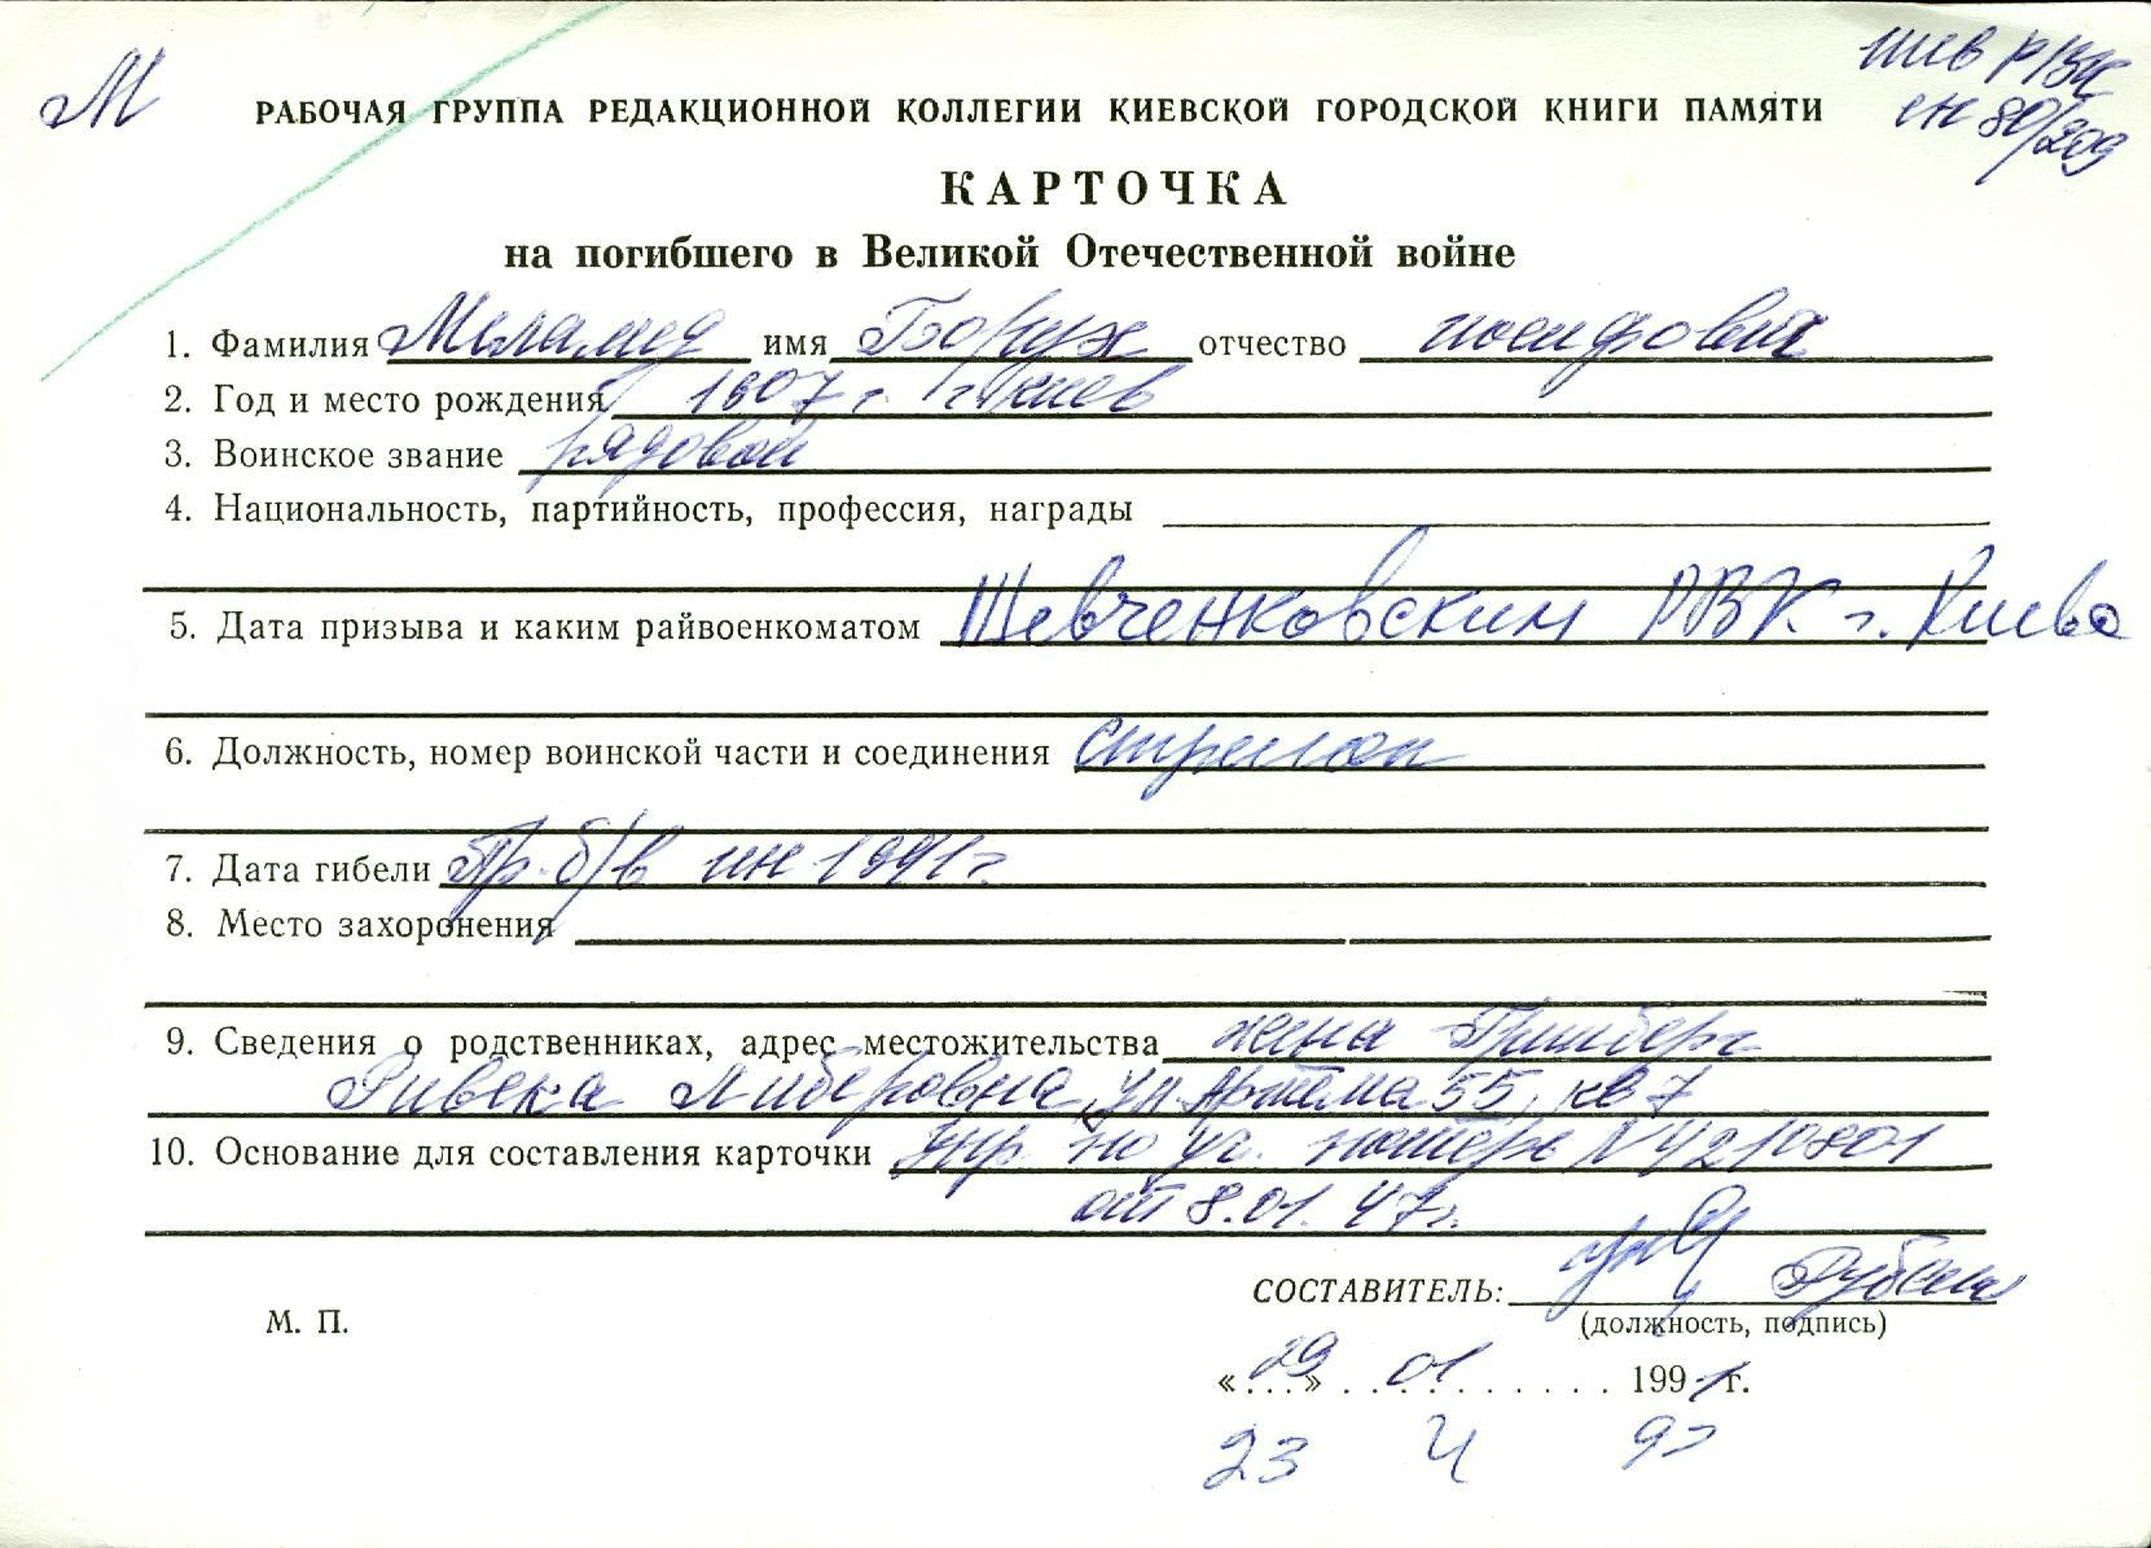 М
шев РВК
сн 80/209
РАБОЧАЯ ГРУППА РЕДАКЦИОННОЙ КОЛЛЕГИИ КИЕВСКОЙ ГОРОДСКОЙ КНИГИ ПАМЯТИ
КАРТОЧКА
на погибшего в Великой Отечественной войне
1. Фамилия Меламед имя Борух отчество иосифович
2. Год и место рождения 1907 г. г. Киев
3. Воинское звание рядовой
4. Национальность, партийность, профессия, награды
5. Дата призыва и каким райвоенкоматом Шевченковским РВК г. Киева
6. Должность, номер воинской части и соединения стрелок
7. Дата гибели Пр. б/в июн 1941 г.
8. Место захоронения
9. Сведения о родственниках, адрес местожительства жена Гринберг
Ривека Либеровна, ул. Артема 55, кв 7
10. Основание для составления карточки Упр. по уч. потерь N 4210801
от 8.01.47г.
СОСТАВИТЕЛЬ:
(должность, подпись)
М. П.
«29» 01 1991 г.
23 4